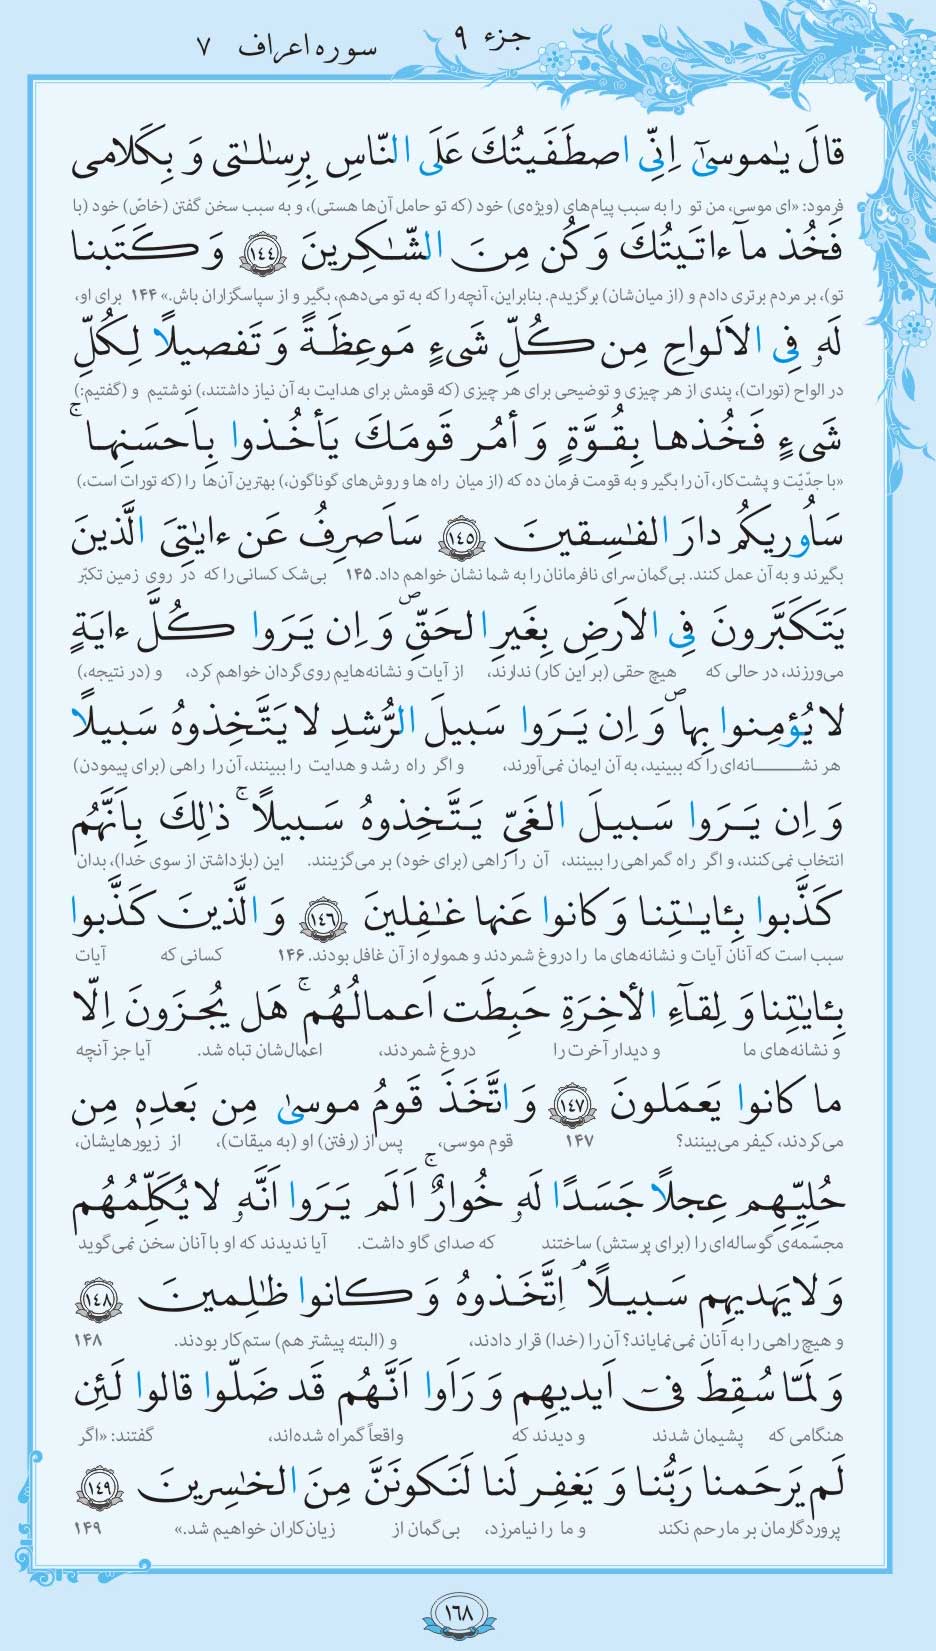 جزء ۹
سوره اعراف ۷
قالَ يٰموسىٰٓ اِنِّى اصطَفَيتُكَ عَلَى النّاسِ بِرِسٰلٰتى وَ بِكَلامى
فرمود: «ای موسی، من تو را به سبب پیام‌های (ویژه‌ی) خود (که تو حامل آن‌ها هستی)، و به سبب سخن گفتن (خاصّ) خود (با
فَخُذ مآ ءاتَيتُكَ وَ كُن مِنَ الشّٰكِرينَ ﴿١٤٤﴾ وَ كَتَبنا
تو)، بر مردم برتری دادم و (از میان‌شان) برگزیدم. بنابراین، آنچه را که به تو می‌دهم، بگیر و از سپاسگزاران باش.» ۱۴۴ برای او،
لَهٗ فِى الاَلواحِ مِن كُلِّ شَىءٍ مَوعِظَةً وَ تَفصيلًا لِكُلِّ
در الواح (تورات)، پندی از هر چیزی و توضیحی برای هر چیزی (که قومش برای هدایت به آن نیاز داشتند،) نوشتیم و (گفتیم:)
شَىءٍ فَخُذها بِقُوَّةٍ وَ أمُر قَومَكَ يَأخُذوا بِاَحسَنِها ۚ
«با جدّیّت و پشت‌کار، آن را بگیر و به قومت فرمان ده که (از میان راه ها و روش‌های گوناگون،) بهترین آن‌ها را (که تورات است،)
سَاُوريكُم دارَ الفٰسِقينَ ﴿١٤٥﴾ سَاَصرِفُ عَن ءايٰتِىَ الَّذينَ
بگیرند و به آن عمل کنند. بی‌گمان سرای نافرمانان را به شما نشان خواهم داد. ۱۴۵ بی‌شک کسانی را که در روی زمین تکبّر
يَتَكَبَّرونَ فِى الاَرضِ بِغَيرِ الحَقِّ ۖ وَ اِن يَرَوا كُلَّ ءايَةٍ
می‌ورزند، در حالی که هیچ حقی (بر این کار) ندارند، از آیات و نشانه‌هایم روی‌گردان خواهم کرد، و (در نتیجه،)
لا يُؤمِنوا بِها ۖ وَ اِن يَرَوا سَبيلَ الرُّشدِ لا يَتَّخِذوهُ سَبيلًا
هر نشــــانه‌ای را که ببینید، به آن ایمان نمی‌آورند، و اگر راه رشد و هدایت را ببینند، آن را راهی (برای پیمودن)
وَ اِن يَرَوا سَبيلَ الغَىِّ يَتَّخِذوهُ سَبيلًا ۚ ذٰلِكَ بِاَنَّهُم
انتخاب نمی‌کنند، و اگر راه گمراهی را ببینند، آن را راهی (برای خود) بر می‌گزینند. این (بازداشتن از سوی خدا)، بدان
كَذَّبوا بِـٔايٰتِنا وَ كانوا عَنها غٰفِلينَ ﴿١٤٦﴾ وَ الَّذينَ كَذَّبوا
سبب است که آنان آیات و نشانه‌های ما را دروغ شمردند و همواره از آن غافل بودند. ۱۴۶ کسانی که آیات
بِـٔايٰتِنا وَ لِقآءِ الأخِرَةِ حَبِطَت اَعمالُهُم ۚ هَل يُجزَونَ اِلّا
و نشانه‌های ما و دیدار آخرت را دروغ شمردند، اعمال‌شان تباه شد. آیا جز آنچه
ما كانوا يَعمَلونَ ﴿١٤٧﴾ وَ اتَّخَذَ قَومُ موسىٰ مِن بَعدِهٖ مِن
می‌کردند، کیفر می‌بینند؟ ۱۴۷ قوم موسی، پس از (رفتن) او (به میقات)، از زیورهایشان،
حُلِيِّهِم عِجلًا جَسَدًا لَهٗ خُوارٌ ۚ اَلَم يَرَوا اَنَّهٗ لا يُكَلِّمُهُم
مجسّمه‌ی گوساله‌ای را (برای پرستش) ساختند که صدای گاو داشت. آیا ندیدند که او با آنان سخن نمی‌گوید
وَ لا يَهديهِم سَبيلًا ۘ اِتَّخَذوهُ وَ كانوا ظٰلِمينَ ﴿١٤٨﴾
و هیچ راهی را به آنان نمی‌نمایاند؟ آن را (خدا) قرار دادند، و (البته پیشتر هم) ستم‌کار بودند. ۱۴۸
وَ لَمّا سُقِطَ فىٓ اَيديهِم وَ رَاَوا اَنَّهُم قَد ضَلّوا قالوا لَئِن
هنگامی که پشیمان شدند و دیدند که واقعاً گمراه شده‌اند، گفتند: «اگر
لَم يَرحَمنا رَبُّنا وَ يَغفِر لَنا لَنَكونَنَّ مِنَ الخٰسِرينَ ﴿١٤٩﴾
پروردگارمان بر ما رحم نکند و ما را نیامرزد، بی‌گمان از زیان‌کاران خواهیم شد.» ۱۴۹
١٦٨